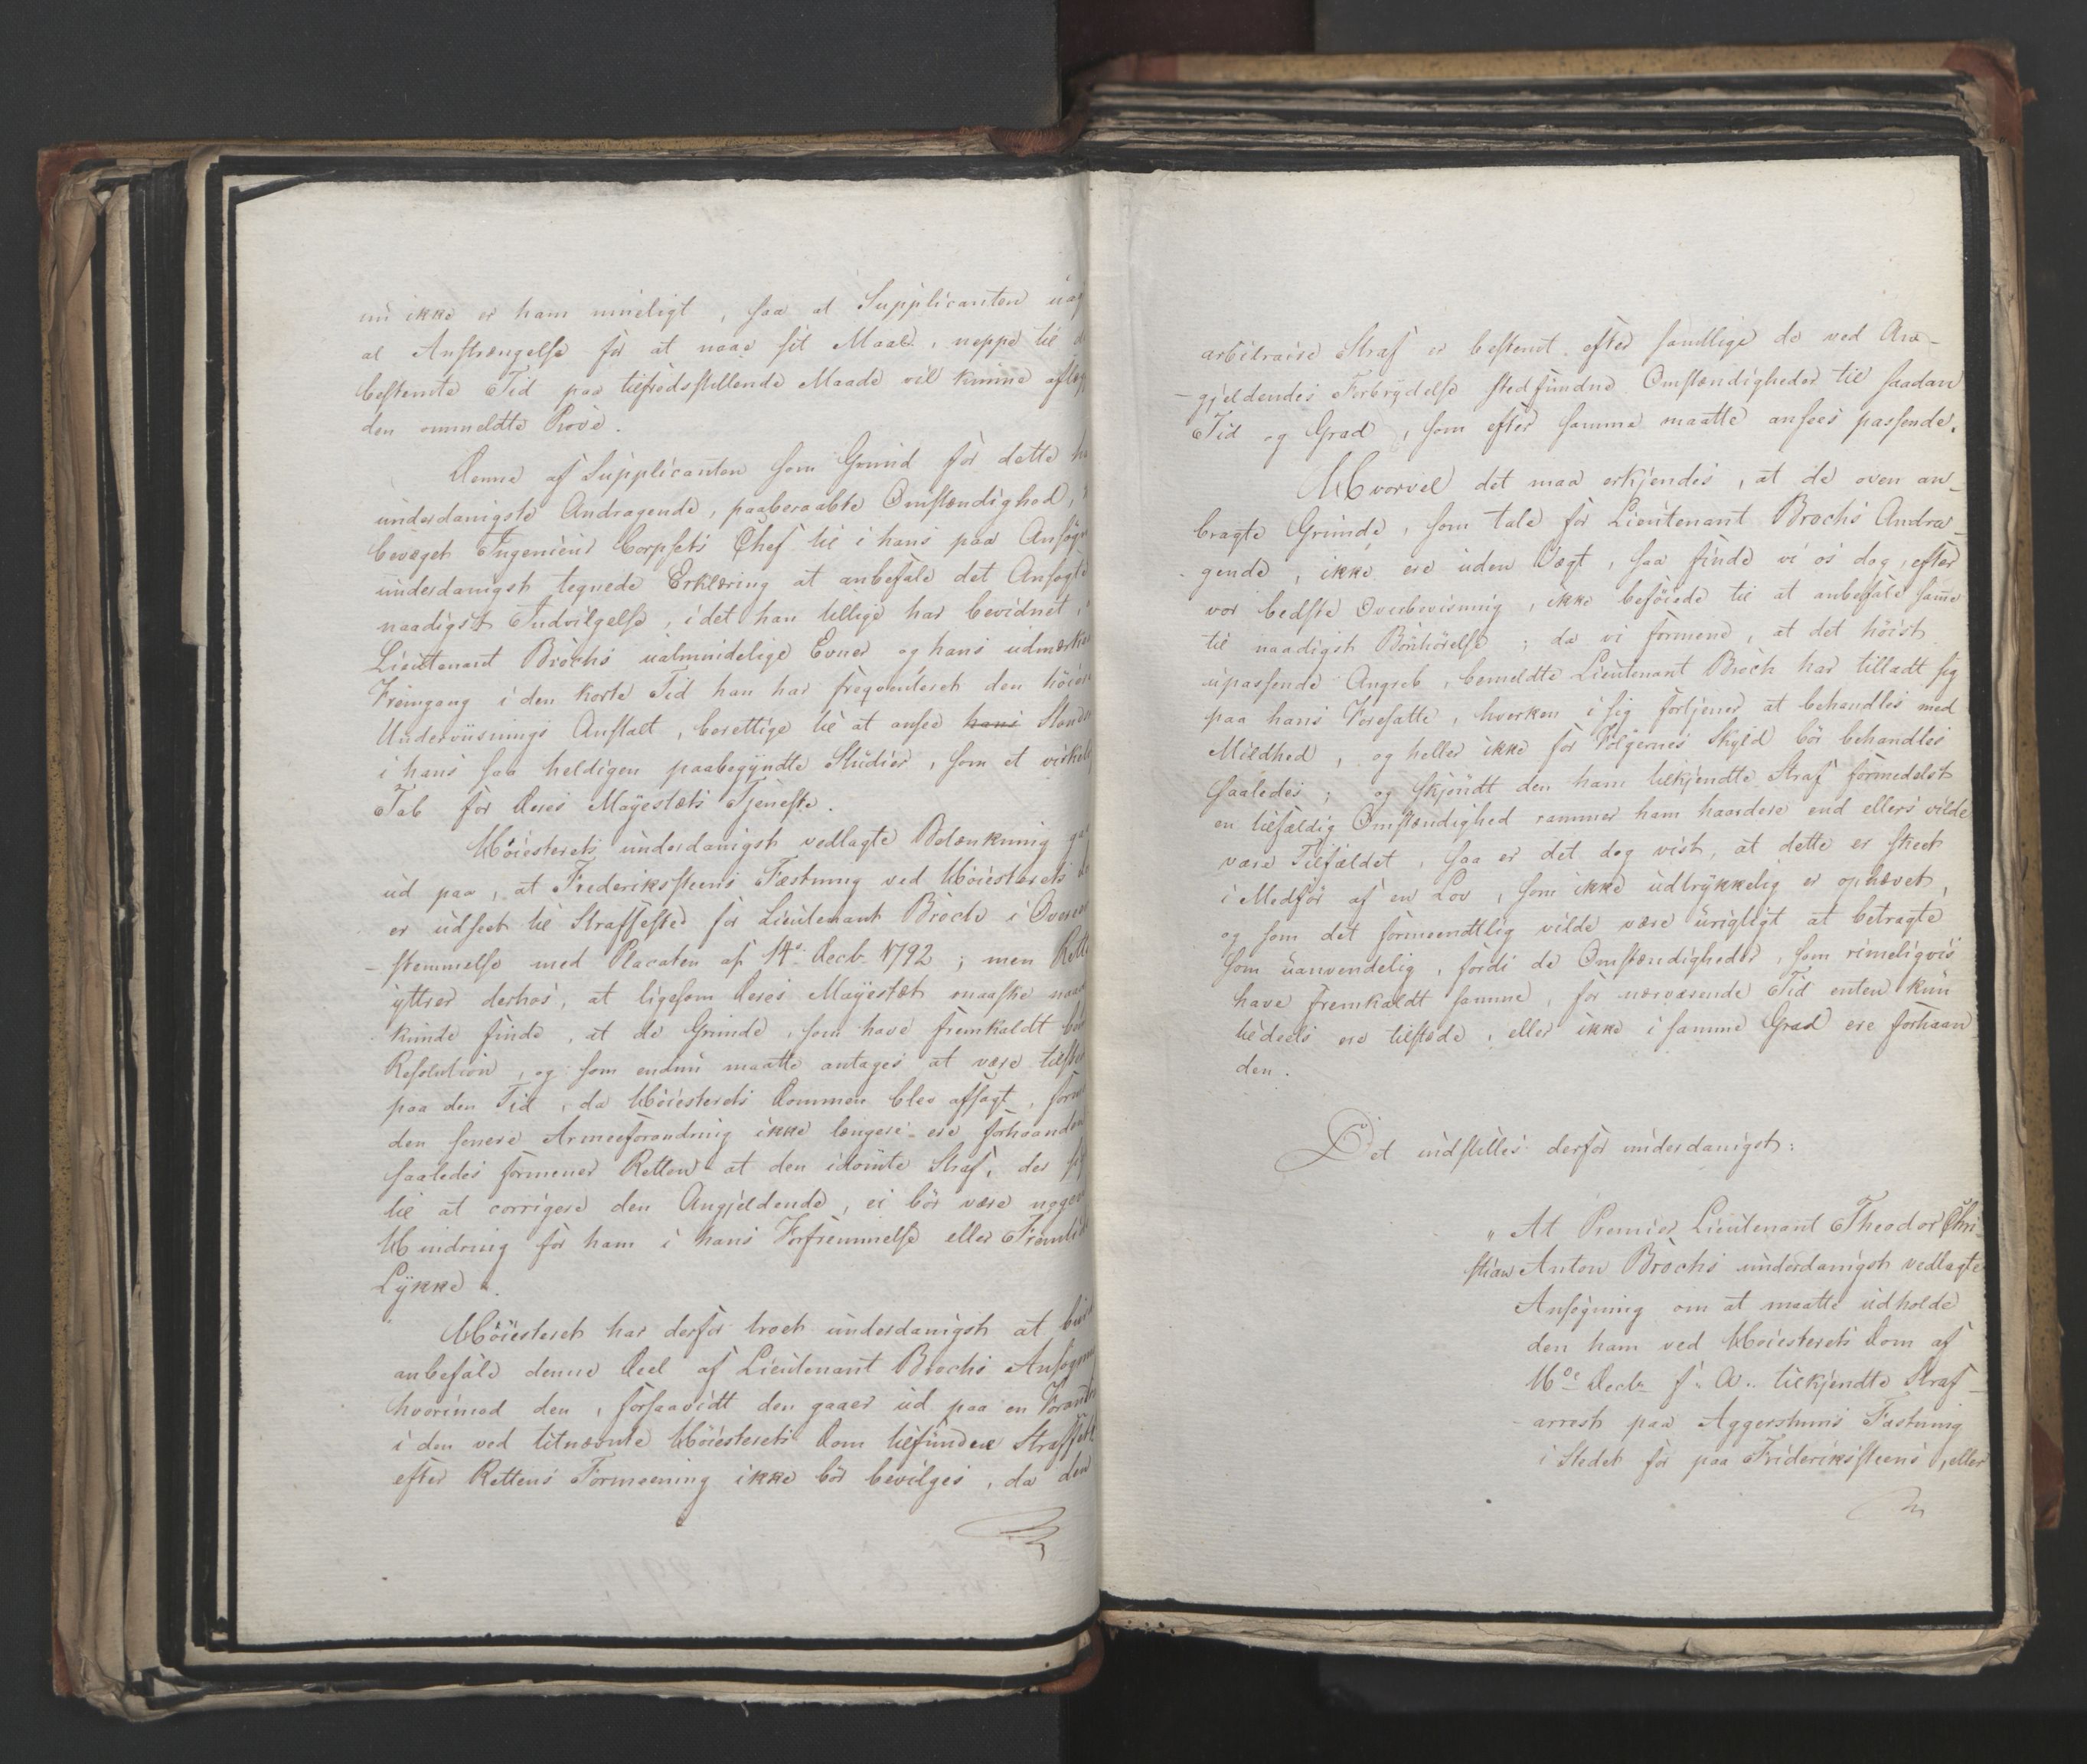 nu ikke er ham mueligt, saa at Supplicanten uag
al Anstrængelse for at naae sit Maal, neppe til d
bestemte Tid paa tilfredsstillende Maade vil kunne aflæg
den ommeldte Prøve.
Denne af Supplicanten som Grund for dette h
underdanigste Andragende, paaberaabte Omstændighed,
bevæget Ingenieur Corpsets Chef til i hans paa Ansøgn
underdanigst tegnede Erklæring at anbefale det Ansøgte
naadigst Indvilgelse, idet han tillige har bevidnet,
Lieutenant Brochs ualmindelige Evner og hans udmærke
Fremgang i den korte Tid han har freqventeret den höiere
Underviisnings Anstalt, berettige til at ansee hans Standsn
i hans saa heldigen paabegyndte Studier, som et virkelig
Tab for Deres Majestæts Tjeneste.
Höiesterets underdanigst vedlagte Betænkning gaa
ud paa, at Frederikssteens Fæstning ved Höiesterets Do
er udseet til Straffested for Lieutenant Broch i Overeen
-stemmelse med Placaten af 14de Decbr 1792; men Rette
yttrer derhos, at ligesom Deres Majestæt maaske naad
kunde finde, at de Grunde, som have fremkaldt bem
Resolution, og som endnu maatte antages at være tilsted
paa den Tid, da Höiesterets Dommen blev afsagt, form
den senere Armeeforandring ikke længere ere forhaanden
saaledes formener Retten at den idömte Straf, der sig
til at corrigere den Angjeldende, ei bör være nogen
Hindring for ham i hans Forfremmelse eller Fremtids
Lykke.
Höiesteret har derfor troet underdanigst at bur
anbefale denne Deel af Lieutenant Brochs Ansøgning
hvorimod den, forsaavidt den gaaer ud paa en Forandri
i den ved litnævnte Höiesterets Dom tilfundne Straffetid
efter Rettens Formeening ikke bör bevilges, da den
arbitraire Straf er bestemt efter samtlige de ved An-
-gjeldendes Forbrydelse stedfundne Omstændigheder til saadan
Tid og Grad, som efter samme maatte ansees passende.
Hvorvel det maa erkjendes, at de oven an-
bragte Grunde, som tale for Lieutenant Brochs Andra-
-gende, ikke ere uden Vægt, saa finde vi os dog, efter
vor bedste Overbeviisning, ikke beföiede til at anbefale same
til naadigst Bönhörelse; da vi formene, at det höist
upassende Angreb, bemeldte Lieutenant Broch har tilladt sig
paa hans Foresatte, hverken i sig fortjener at behandles med
Mildhed, og heller ikke for Fölgernes Skyld bör behandles
saaledes; og skjöndt den ham tilkjendte Straf formedelst
en tilfældig Omstændighed rammer ham haardere end ellers vilde
være Tilfældet, saa er det dog vist, at dette er skeet
i Medför af en Lov, som ikke udtrykkelig er ophævet,
og som det formeendtlig vilde være urigtigt at betragte
som uanvendelig, fordi de Omstændigheder, som rimeligviis
have fremkaldt samme, for nærværende Tid enten kun
tildeels ere tilstede, eller ikke i samme Grad ere forhaan
den.
Det indstilles derfor underdanigst:
"At Premier Lieutenant Theodor Chri-
stian Anton Brochs underdanigst vedlagte
Ansøgning om at maatte udholde
den ham ved Höiesterets Dom af
16de Decbr f. A. tilkjendte Straf-
-arrest paa Aggershuus Fæstning
i Stedet for paa Frideriksteens, eller